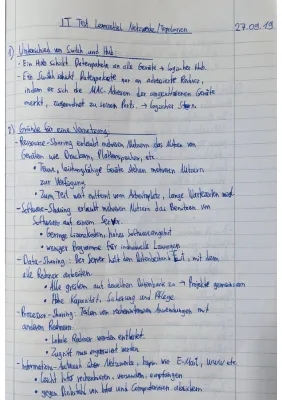 IT Test Lernzettel Netzwerke/Topologien 27.09.19
1) Unterschied von Switch und Hub:
- Ein Hub schickt Datenpakete an alle Geräte → logischer Bus.
- Ein Switch schickt Datenpakete nur an adressierte Rechner,
indem er sich die MAC Adressen der angeschlossenen Geräte
merkt, zugeordnet zu seinen Ports. → logischer Stern.
2) Gründe für eine Vernetzung:
- Ressource-Sharing erlaubt mehreren Nutzern das Nutzen von
Geräten wie Druckern, Plattenspeichern, etc.
• Teure, leistungsfähige Geräte stehen mehreren Nutzern
zur Verfügung
• Zum Teil weit entfernt vom Arbeitsplatz, lange Wartezeiten
- Software-Sharing erlaubt mehreren Nutzern das Benutzen von
Software auf einem Server.
• geringe Lizenzkosten, hohes Softwareangebot
• weniger Programme für individuelle
- Data-Sharing: Der Server hält den Datenbestand, mit dem
alle Rechner arbeiten.
• Alle greifen auf dieselben zu → Projekte gemeinsam
• Hohe Kapazität, Sicherung und Pflege
- Prozessor-Sharing: Teilen von rechenintensiven Anwendungen mit
anderen Rechnern.
• Lokale Rechner werden entlastet.
• Zugriff muss organisiert werden
- Informations-Austausch über Netzwerke, bspw. wie E-Mail, www etc.
• Leicht Infos recherchieren, versenden, empfangen
• gegen Diebstahl von Infos und Computerviren absichern